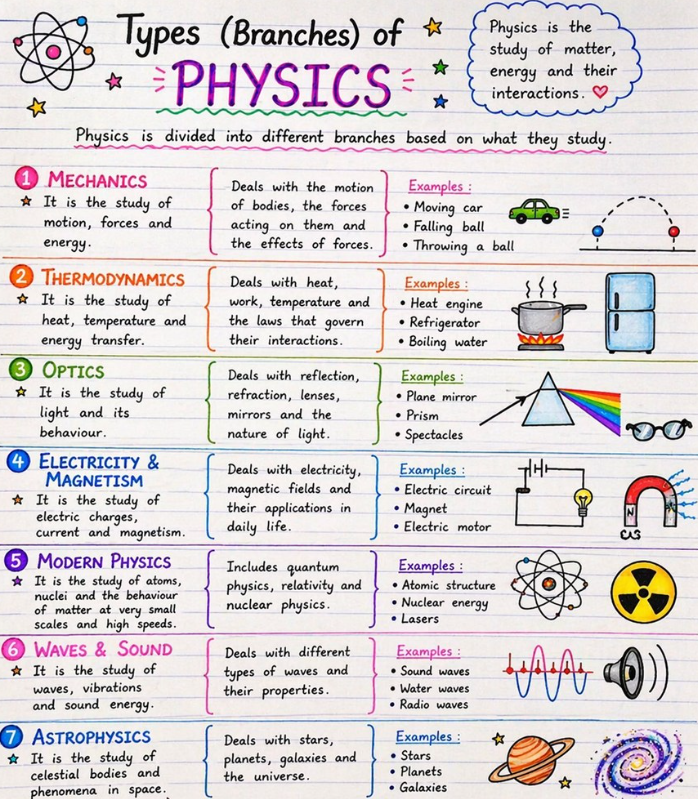 Types (Branches) of
PHYSICS
Physics is the
study of matter,
energy and their
interactions.
Physics is divided into different branches based on what they study.
1 MECHANICS
It is the study of
motion, forces and
energy.
Deals with the motion
of bodies, the forces
acting on them and
the effects of forces.
Examples :
• Moving car
• Falling ball
• Throwing a ball
2 THERMODYNAMICS
It is the study of
heat, temperature and
energy transfer.
Deals with heat,
work, temperature and
the laws that govern
their interactions.
Examples :
• Heat engine
• Refrigerator
• Boiling water
3 OPTICS
It is the study of
light and its
behaviour.
Deals with reflection,
refraction, lenses,
mirrors and the
nature of light.
Examples :
• Plane mirror
• Prism
• Spectacles
4 ELECTRICITY &
MAGNETISM
It is the study of
electric charges,
current and magnetism.
Deals with electricity,
magnetic fields and
their applications in
daily life.
Examples :
• Electric circuit
• Magnet
• Electric motor
N
5 MODERN PHYSICS
It is the study of atoms,
nuclei and the behaviour
of matter at very small
scales and high speeds.
Includes quantum
physics, relativity and
nuclear physics.
Examples :
• Atomic structure
• Nuclear energy
• Lasers
6 WAVES & SOUND
It is the study of
waves, vibrations
and sound energy.
Deals with different
types of waves and
their properties.
Examples :
• Sound waves
• Water waves
• Radio waves
7 ASTROPHYSICS
It is the study of
celestial bodies and
phenomena in space.
Deals with stars,
planets, galaxies and
the universe.
Examples :
• Stars
• Planets
• Galaxies